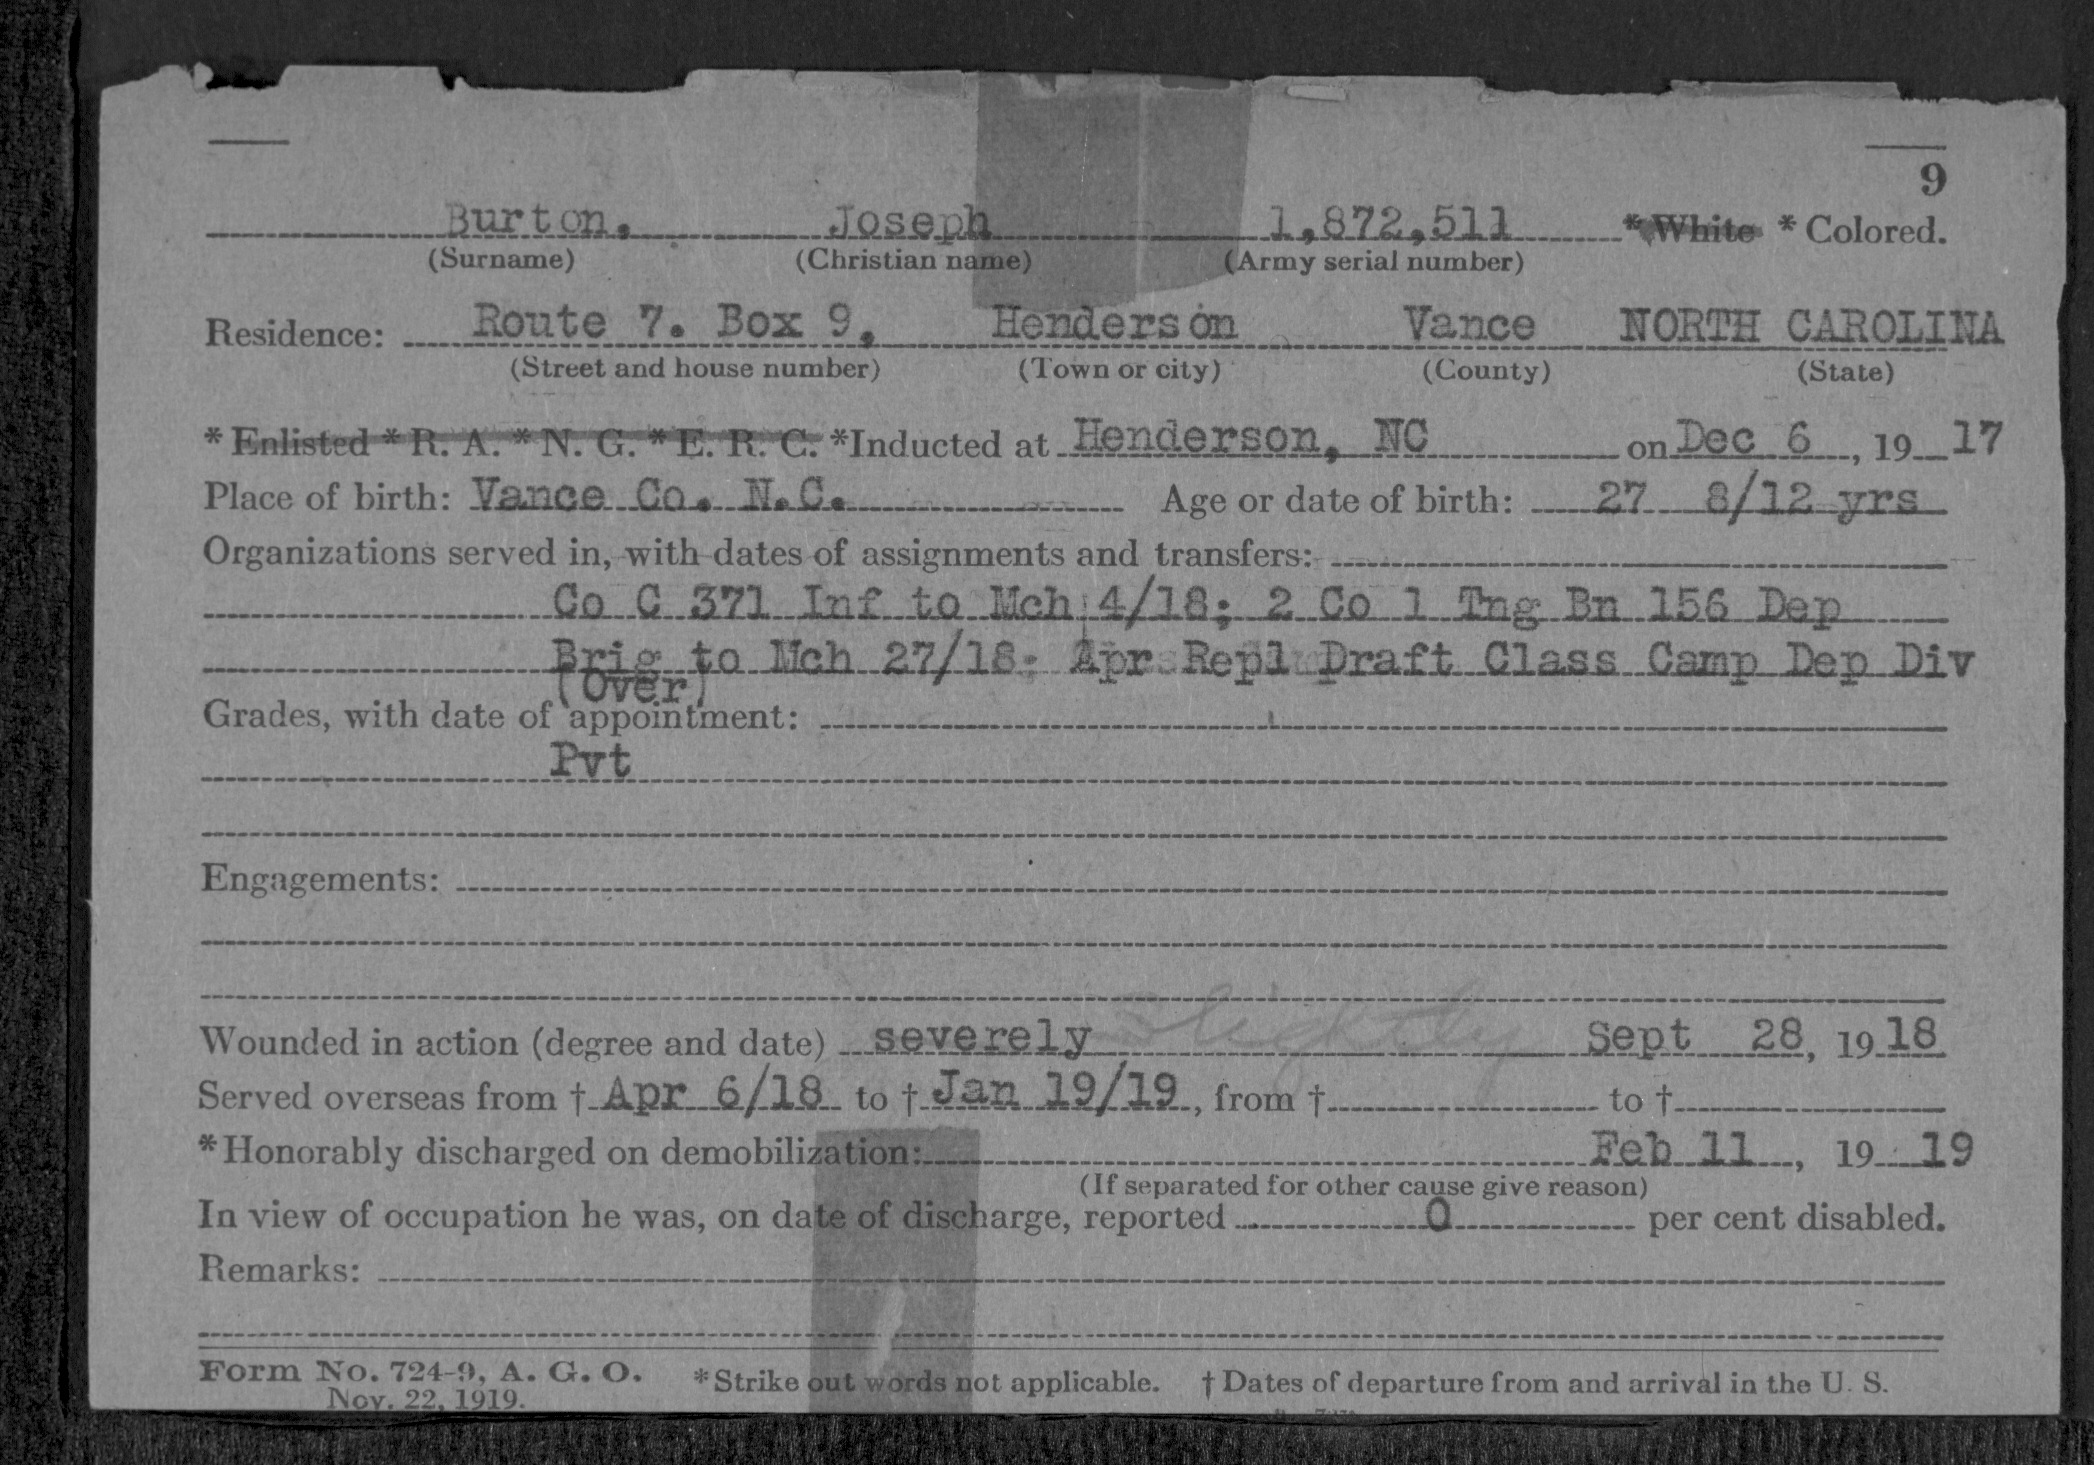 9
Burton, Joseph 1,872,511 * White * Colored.
(Surname) (Christian name) (Army serial number)
Residence: Route 7. Box 9, Henderson Vance NORTH CAROLINA
(Street and house number) (Town or city) (County) (State)
* Enlisted * R. A. * N. G. * E. R. C. *Inducted at Henderson, NC on Dec 6, 19 17
Place of birth: Vance Co. N.C. Age or date of birth: 27 8/12 yrs
Organizations served in, with dates of assignments and transfers:
Co C 371 Inf to Mch 4/18; 2 Co 1 Tng Bn 156 Dep
Brig to Mch 27/18; Apr Repl Draft Class Camp Dep Div
(Over)
Grades, with date of appointment:
Pvt
Engagements:
Wounded in action (degree and date) severely slightly Sept 28, 19 18
Served overseas from † Apr 6/18 to † Jan 19/19, from † to †
* Honorably discharged on demobilization: Feb 11, 19 19
(If separated for other cause give reason)
In view of occupation he was, on date of discharge, reported 0 per cent disabled.
Remarks:
Form No. 724-9, A. G. O. * Strike out words not applicable. † Dates of departure from and arrival in the U. S.
Nov. 22, 1919.